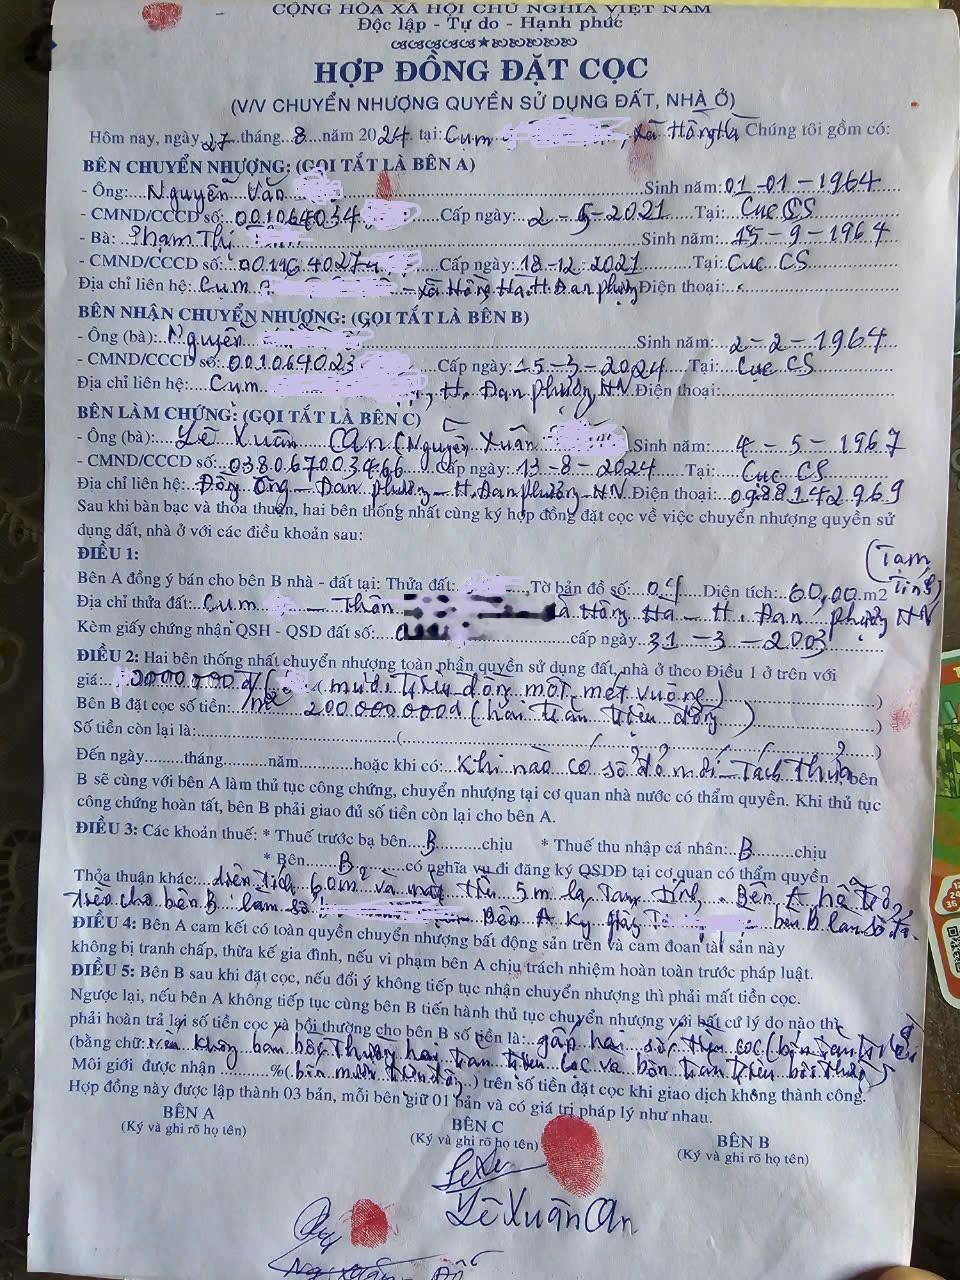 CỘNG HÒA XÃ HỘI CHỦ NGHĨA VIỆT NAM
Độc lập - Tự do - Hạnh phúc
HỢP ĐỒNG ĐẶT CỌC
(V/V CHUYỂN NHƯỢNG QUYỀN SỬ DỤNG ĐẤT, NHÀ Ở)
Hôm nay, ngày 27 tháng 8 năm 2024 tại: Cụm , xã Hồng Hà Chúng tôi gồm có:
BÊN CHUYỂN NHƯỢNG: (GỌI TẮT LÀ BÊN A)
- Ông: Nguyễn Văn Sinh năm: 01-01-1964
- CMND/CCCD số: 001064034 Cấp ngày: 2-5-2021 Tại: Cục CS
- Bà: Phạm Thị Sinh năm: 15-9-1964
- CMND/CCCD số: Cấp ngày: 18-12-2021 Tại: Cục CS
Địa chỉ liên hệ: Cụm - xã Hồng Hà H. Đan phượng Điện thoại:
BÊN NHẬN CHUYỂN NHƯỢNG: (GỌI TẮT LÀ BÊN B)
- Ông (bà): Nguyễn Sinh năm: 2-2-1964
- CMND/CCCD số: 001064023 Cấp ngày: 15-3-2024 Tại: Cục CS
Địa chỉ liên hệ: Cụm , H. Đan phượng HN Điện thoại:
BÊN LÀM CHỨNG: (GỌI TẮT LÀ BÊN C)
- Ông (bà): Lê Xuân An (Nguyễn Xuân Sinh năm: 4-5-1967
- CMND/CCCD số: 038067003466 Cấp ngày: 13-8-2024 Tại: Cục CS
Địa chỉ liên hệ: Đồng Ông - Đan phượng - H. Đan phượng - HN Điện thoại: 0988142969
Sau khi bàn bạc và thỏa thuận, hai bên thống nhất cùng ký hợp đồng đặt cọc về việc chuyển nhượng quyền sử
dụng đất, nhà ở với các điều khoản sau:
ĐIỀU 1:
Bên A đồng ý bán cho bên B nhà - đất tại: Thửa đất: Tờ bản đồ số: 04 Diện tích: 60,00 m2 (Tạm tính)
Địa chỉ thửa đất: Cụm - Thôn xã Hồng Hà - H. Đan phượng HN
Kèm giấy chứng nhận QSH - QSD đất số: cấp ngày 31-3-2003
ĐIỀU 2: Hai bên thống nhất chuyển nhượng toàn phần quyền sử dụng đất, nhà ở theo Điều 1 ở trên với
giá: (mười triệu đồng một mét vuông)
Bên B đặt cọc số tiền: 200000000đ (hai trăm triệu đồng)
Số tiền còn lại là: ( )
Đến ngày tháng năm hoặc khi có: Khi nào có sổ đỏ mới - Tách thửa bên
B sẽ cùng với bên A làm thủ tục công chứng, chuyển nhượng tại cơ quan nhà nước có thẩm quyền. Khi thủ tục
công chứng hoàn tất, bên B phải giao đủ số tiền còn lại cho bên A.
ĐIỀU 3: Các khoản thuế: * Thuế trước bạ bên B chịu * Thuế thu nhập cá nhân: B chịu
* Bên B có nghĩa vụ đi đăng ký QSDĐ tại cơ quan có thẩm quyền
Thỏa thuận khác: diện tích 60m² và mặt tiền 5m là Tạm tính. Bên A hỗ trợ
cho bên B làm sổ Bên A ký giấy bên B làm sổ đỏ.
ĐIỀU 4: Bên A cam kết có toàn quyền chuyển nhượng bất động sản trên và cam đoan tài sản này
không bị tranh chấp, thừa kế gia đình, nếu vi phạm bên A chịu trách nhiệm hoàn toàn trước pháp luật.
ĐIỀU 5: Bên B sau khi đặt cọc, nếu đổi ý không tiếp tục nhận chuyển nhượng thì phải mất tiền cọc.
Ngược lại, nếu bên A không tiếp tục cùng bên B tiến hành thủ tục chuyển nhượng với bất cứ lý do nào thì
phải hoàn trả lại số tiền cọc và bồi thường cho bên B số tiền là: gấp hai số tiền cọc (bốn trăm triệu
(bằng chữ: nếu không bán bồi thường hai trăm triệu cọc và bốn trăm triệu bồi thường)
Môi giới được nhận %( bốn mươi triệu đồng ) trên số tiền đặt cọc khi giao dịch không thành công.
Hợp đồng này được lập thành 03 bản, mỗi bên giữ 01 bản và có giá trị pháp lý như nhau.
BÊN A BÊN C BÊN B
(Ký và ghi rõ họ tên) (Ký và ghi rõ họ tên) (Ký và ghi rõ họ tên)
Lê Xuân An